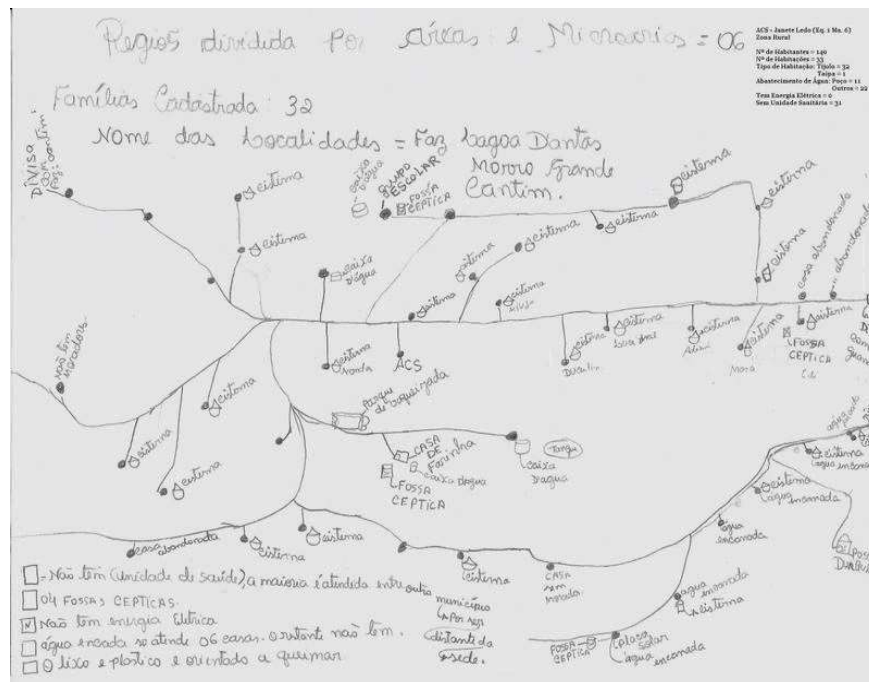 Regios dividida Por áreas e Microarias = 06
ACS - Janete Ledo (Eq. 1 Ma. 6)
Zona Rural
Nº de Habitantes = 149
Nº de Habitações = 33
Tipo de Habitação: Tijolo = 32
Taipa = 1
Abastecimento de Água: Poço = 11
Outros = 22
Tem Energia Elétrica = 0
Sem Unidade Sanitária = 31
Famílias Cadastrada: 32
Nome das Localidades = Faz Lagoa Dantas
Morro Grande
Cantim.
DIVISA
com
Faz: Cantim
cisterna
caixa
D'agua
GRUPO
ESCOLAR
FOSSA
CEPTICA
cisterna
cisterna
cisterna
cisterna
cisterna
cisterna
caixa
D'agua
cisterna
cisterna
casa abandonada
" abandonada
cisterna
cisterna
não tem
Moradores
cisterna
ACS
cisterna
cisterna
cisterna
cisterna
cisterna
FOSSA
CEPTICA
cisterna
cisterna
cisterna
Parque
de Vaqueijada
CASA
DE
Farinha
caixa dagua
FOSSA
CEPTICA
Tanque
caixa
D'agua
cisterna
agua encanada
cisterna
água encanada
água
encanada
casa
abandonada
cisterna
cisterna
cisterna
CASA
sem
Morada
agua
encanada
cisterna
FOSSA
CEPTICA
placa
solar
água encanada
- Não tem (unidade de saúde), a maioria é atendida entre outro município
Por ser
distante da
sede.
04 FOSSAS CEPTICAS.
Não tem energia Eletrica
água encada so atende 06 casas. o restante não tem.
O lixo e plastico e orientado a queimar